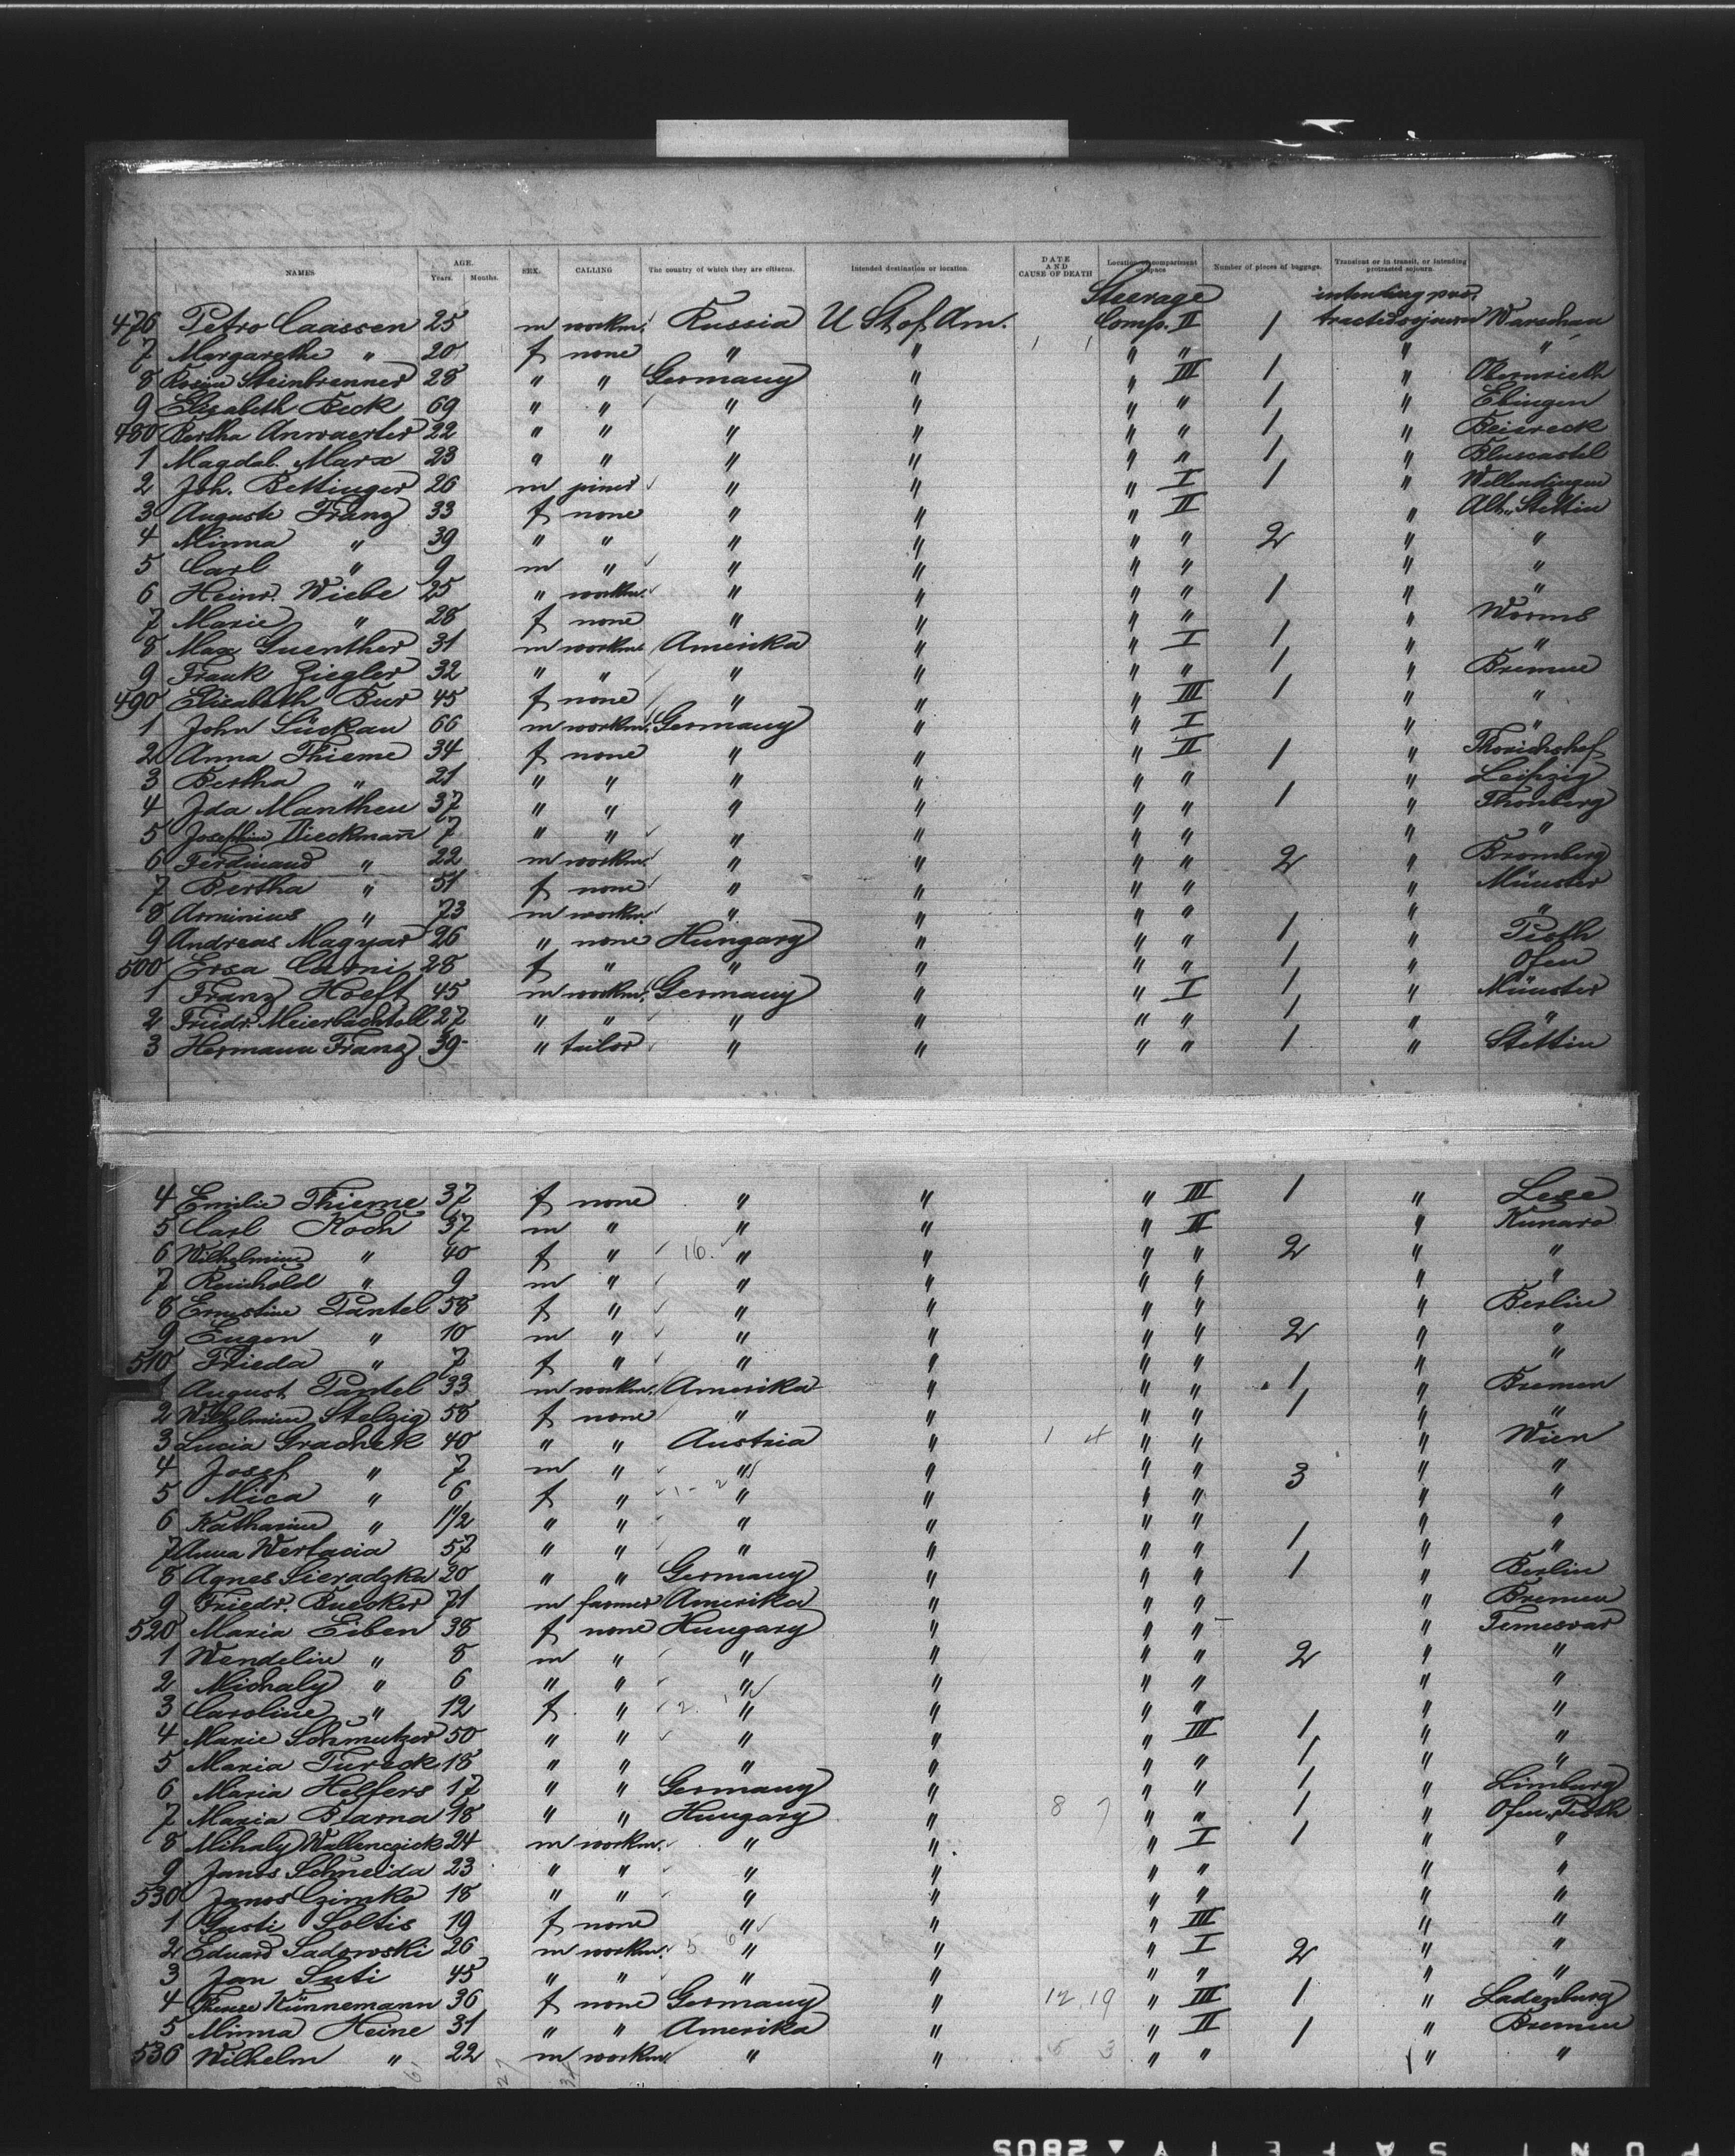 NAMES AGE. Years. Months. SEX. CALLING The country of which they are citizens. Intended destination or location. DATE AND CAUSE OF DEATH Location of compartment or space Number of pieces of baggage. Transient or in transit, or intending protracted sojourn.
Steerage intending pro-
476 Petro Caassen 25 m workm. Russia U St of Am. Comp. II 1 tracted sojourn Warschau
7 Margarethe " 20 f none " " 1 1 " " " "
8 Rosine Steinbrenner 28 " " Germany " " III 1 "
9 Elisabeth Beck 69 " " " " " " 1 " Ebingen
480 Bertha Anwaerter 22 " " " " " " 1 "
1 Magdal. Marx 23 " " " " " " 1 "
2 Joh. Bettinger 26 m joiner " " " I 1 " Wellendingen
3 Auguste Franz 33 f none " " " II " Alt-Stettin
4 Minna " 39 " " " " " " 2 " "
5 Carl " 9 m " " " " " " "
6 Heinr. Wiebe 25 " workm. " " " " 1 " "
7 Marie " 28 f none " " " " " Worms
8 Max Guenther 31 m workm. Amerika " " I 1 " "
9 Frank Ziegler 32 " " " " " " 1 " Bremen
490 Elisabeth Bur 45 f none " " " III 1 " "
1 John Lückau 66 m workm. Germany " " I " "
2 Anna Thieme 34 f none " " " II 1 "
3 Bertha " 21 " " " " " " " Leipzig
4 Ida Mantheu 37 " " " " " " 1 " Thonberg
5 Josephine Dieckmann 7 " " " " " " " "
6 Ferdinand " 22 m workm. " " " " 2 " Bromberg
7 Bertha " 51 f none " " " " " Münster
8 Arminius " 73 m workm. " " " " " "
9 Andreas Magyar 26 " none Hungary " " " 1 " Pesth
500 Ersa Carni 28 f " " " " " 1 " Ofen
1 Franz Hoeft 45 m workm. Germany " " I 1 " Münster
2 Friedr. Meierbachtoll 27 " " " " " " 1 " "
3 Hermann Franz 39 " tailor " " " " 1 " Stettin
4 Emilie Thieme 37 f none " " " III 1 " Lexe
5 Carl Koch 37 m " " " " II " Kunara
6 Wilhelmine " 40 f " 16. " " " " 2 " "
7 Reinhold " 9 m " " " " " " "
8 Ernestine Pantel 58 f " " " " " " Berlin
9 Eugen " 10 m " " " " " 2 " "
510 Frieda " 7 f " " " " " " "
1 August Pantel 33 m workm. Amerika " " " 1 " Bremen
2 Wilhelmine Stelzig 58 f none " " " " 1 " "
3 Lucia Grachek 40 " " Austria " 1 4 " " " Wien
4 Josef " 7 m " " " " " 3 " "
5 Mica " 6 f " 1 - 2 " " " " " "
6 Katharine " 1 1/2 " " " " " " " "
7 Anna Wertacia 57 " " " " " " 1 " "
8 Agnes Sieradzka 20 " " Germany " " " 1 " Berlin
9 Friedr. Buecker 71 m farmer Amerika " " " " Bremen
520 Maria Eiben 38 f none Hungary " " " " Temesvar
1 Wendelin " 8 m " " " " " 2 " "
2 Michaly " 6 " " " " " " " "
3 Caroline " 12 f " 2. 1 " " " " " "
4 Marie Schmutzer 50 " " " " " III 1 " "
5 Maria Tureck 18 " " " " " " 1 " "
6 Maria Helfers 17 " " Germany " " " 1 " Limburg
7 Maria Barna 18 " " Hungary " 8 7 " " 1 " Ofen-Pesth
8 Mihaly Wallenczick 24 m workm. " " " I 1 " "
9 Janos Schneida 23 " " " " " " " "
530 Janos Czimko 18 " " " " " " " "
1 Gusti Soltis 19 f none " " " III " "
2 Eduard Sadowski 26 m workm. 5 6 " " " I 2 " "
3 Jan Suti 45 " " " " " " " "
4 Therese Künnemann 36 f none Germany " 12 19 " III 1 " Ladenburg
5 Minna Heine 31 " " Amerika " " II 1 " Bremen
536 Wilhelm " 22 m workm. " " 5 3 " " " "